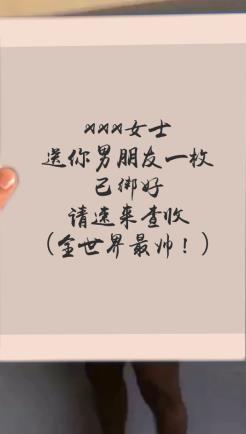 xxx女士
送你男朋友一枚
已绑好
请速来查收
(全世界最帅！)